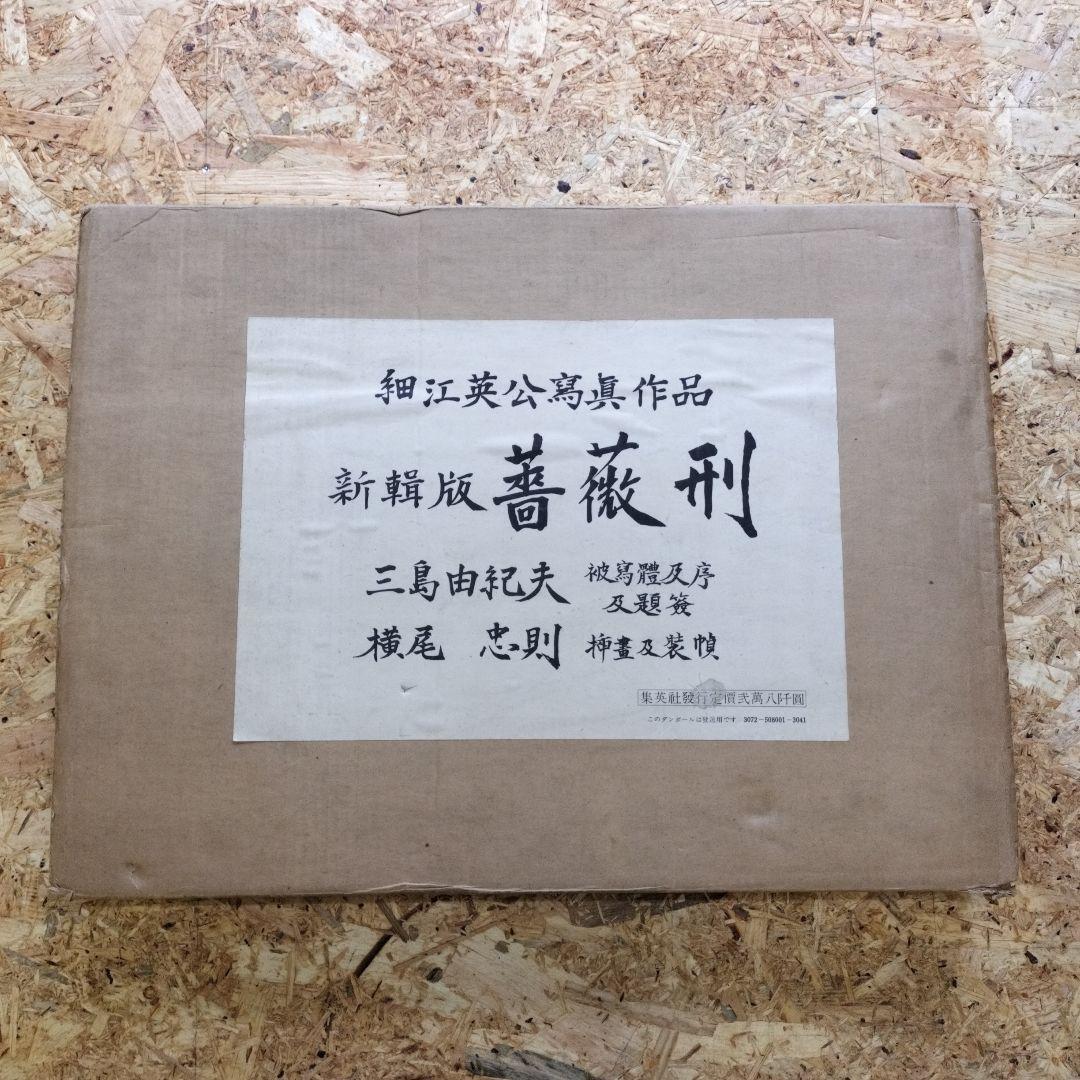 細江英公寫眞作品
新輯版 薔薇刑
三島由紀夫 被寫體及序
及題簽
横尾 忠則 挿畫及装幀
集英社發行定價弐萬八阡圓
このダンボールは発送用です 3072-508001-3041